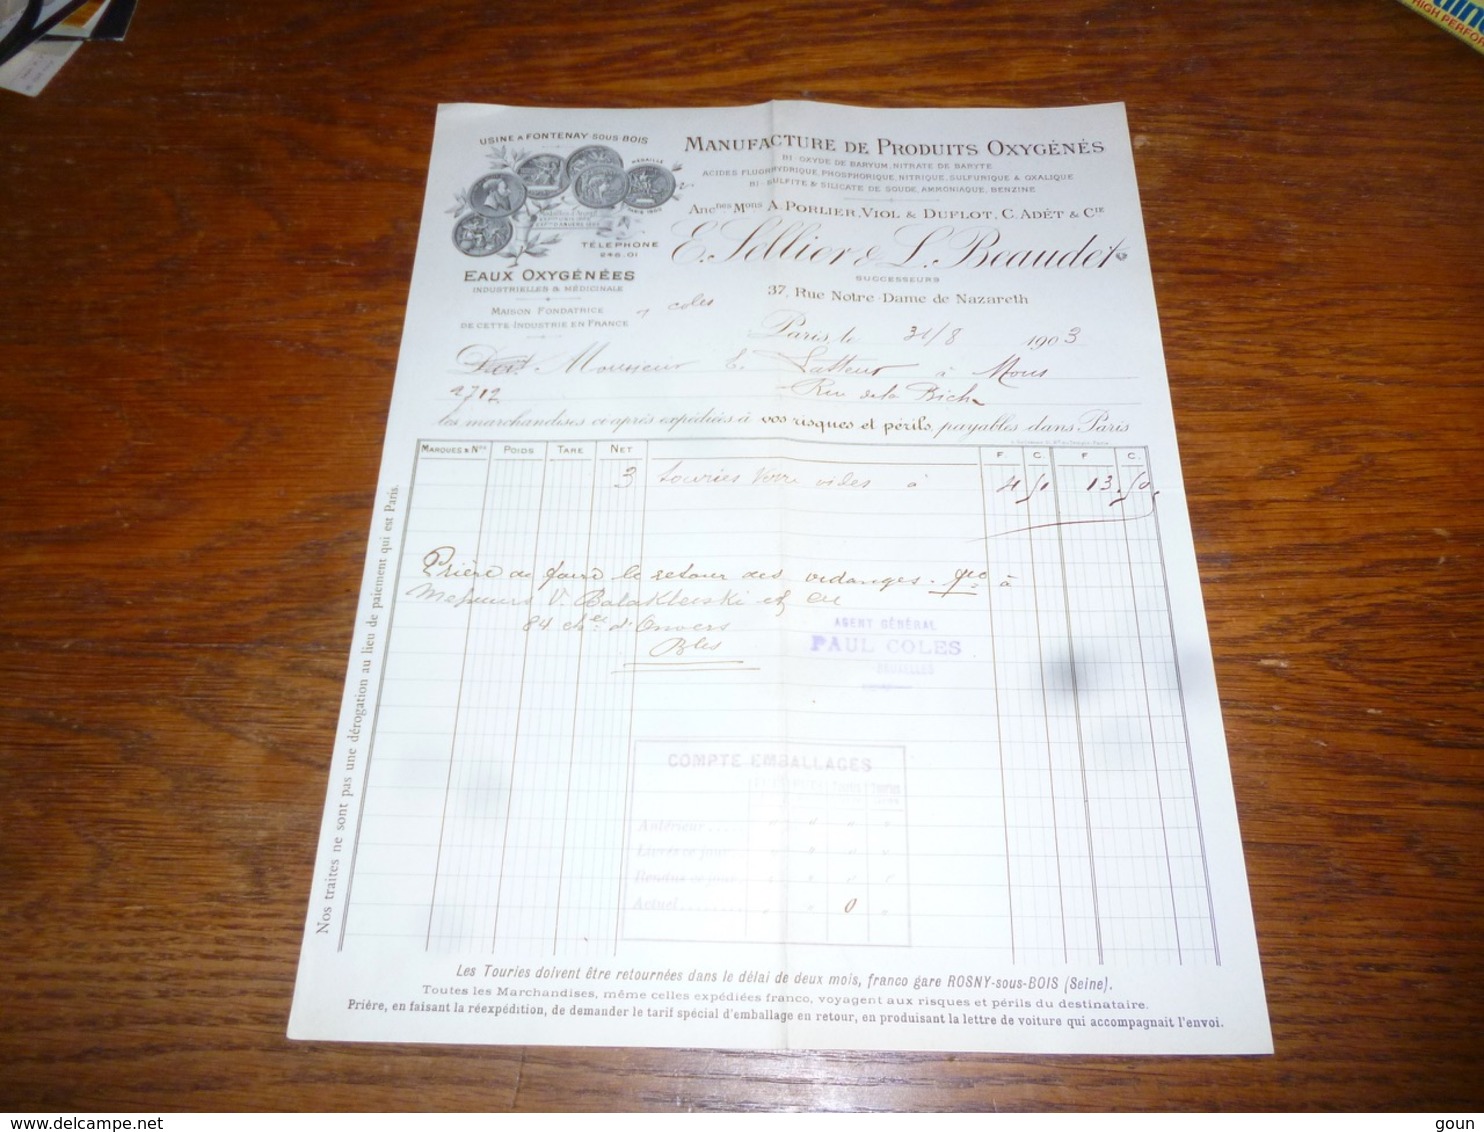 USINE A FONTENAY SOUS BOIS
MÉDAILLE
PARIS 1900
TÉLÉPHONE
246.01
EAUX OXYGÉNÉES
INDUSTRIELLES & MÉDICINALE
MAISON FONDATRICE
DE CETTE INDUSTRIE EN FRANCE
MANUFACTURE DE PRODUITS OXYGÉNÉS
BI-OXYDE DE BARYUM, NITRATE DE BARYTE
ACIDES FLUORHYDRIQUE, PHOSPHORIQUE, NITRIQUE, SULFURIQUE & OXALIQUE
BI-SULFITE & SILICATE DE SOUDE, AMMONIAQUE, BENZINE
ANCNES MONS A. PORLIER, VIOL & DUFLOT, C. ADÈT & CIE
E. Sellier & L. Beaudet
SUCCESSEURS
37, Rue Notre-Dame de Nazareth
coles
Paris, le 31/8 1903
Doit Monsieur E. Latteur à Mons
2712 Rue de la Biche
les marchandises ci-après expédiées à vos risques et périls, payables dans Paris
MARQUES & Nos POIDS TARE NET F. C. F. C.
3 touries verre vides à 4 50 13.50
Prière de faire le retour des vidanges. fco à
Messieurs V. Balaklerski et Cie
84 chée d'Anvers
Bles
AGENT GÉNÉRAL
PAUL COLES
BRUXELLES
COMPTE EMBALLAGES
Antérieur
Livrés ce jour
Rendus ce jour
Actuel 0
Nos traites ne sont pas une dérogation au lieu de paiement qui est Paris.
Les Touries doivent être retournées dans le délai de deux mois, franco gare ROSNY-sous-BOIS (Seine).
Toutes les Marchandises, même celles expédiées franco, voyagent aux risques et périls du destinataire.
Prière, en faisant la réexpédition, de demander le tarif spécial d'emballage en retour, en produisant la lettre de voiture qui accompagnait l'envoi.
HIGH PERFOR
delcampe.net
goun